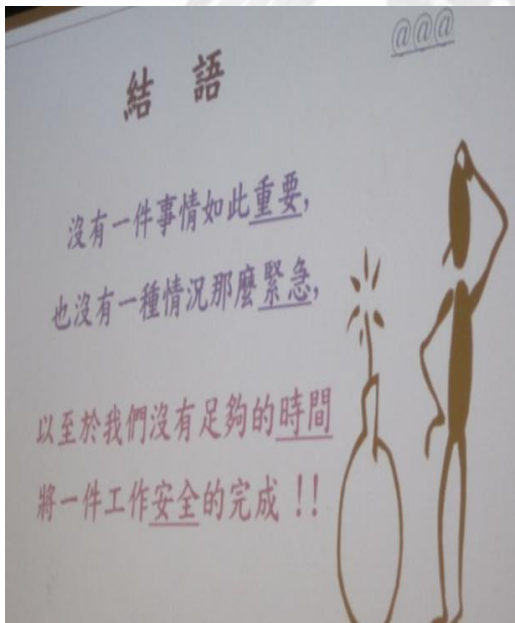 @@@
結 語
沒有一件事情如此重要,
也沒有一種情況那麼緊急,
以至於我們沒有足夠的時間
將一件工作安全的完成 !!